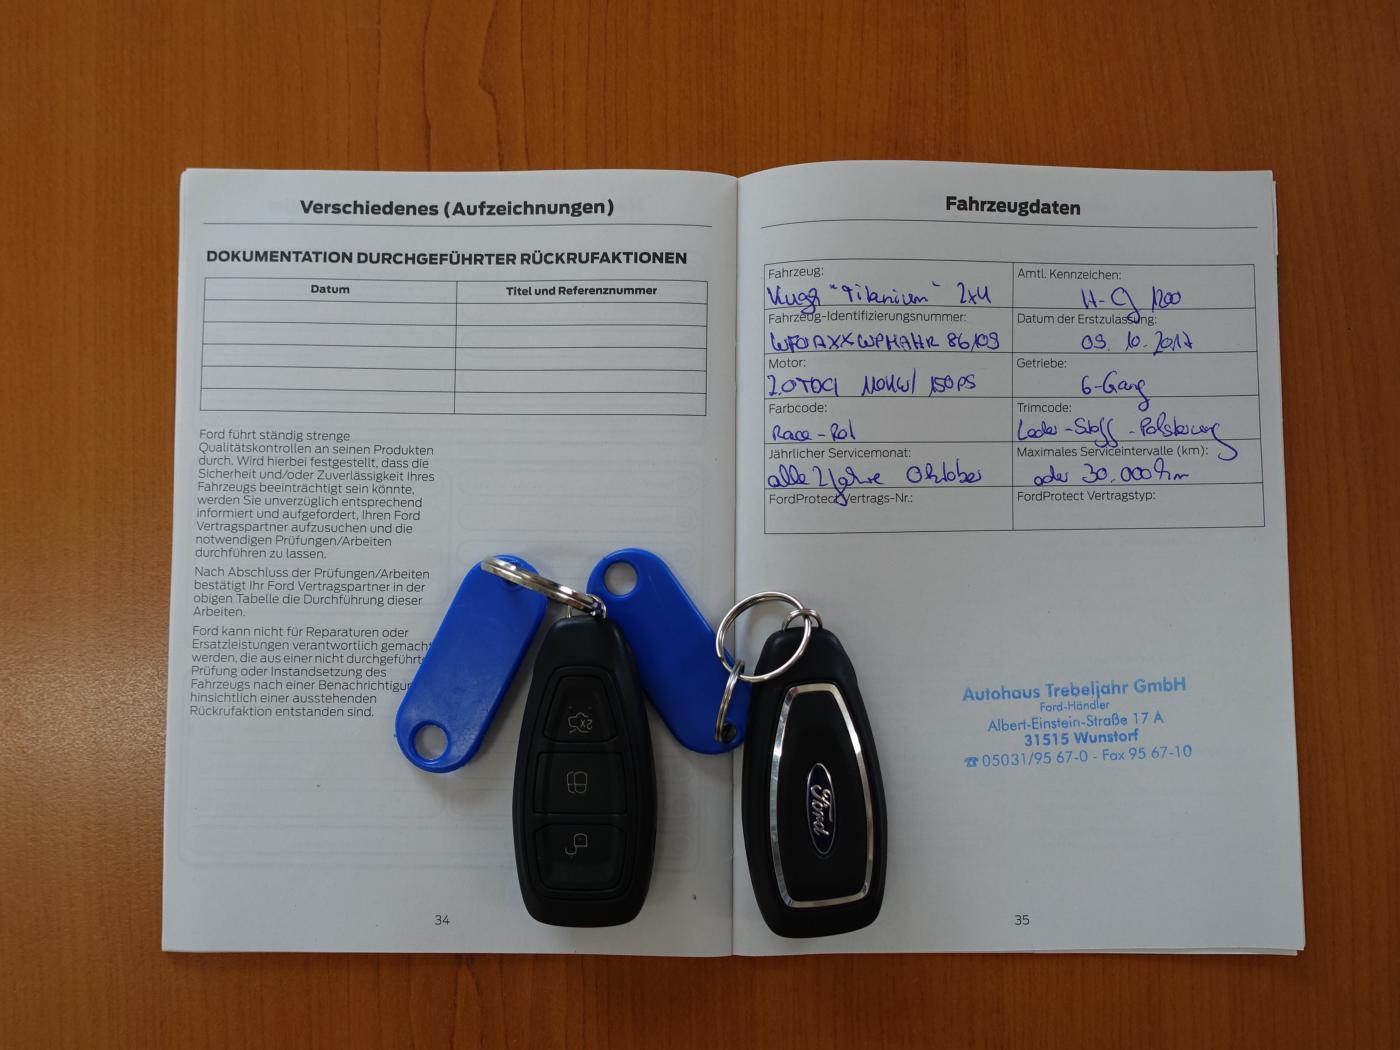 Verschiedenes (Aufzeichnungen)
DOKUMENTATION DURCHGEFÜHRTER RÜCKRUFAKTIONEN
Datum
Titel und Referenznummer
Ford führt ständig strenge
Qualitätskontrollen an seinen Produkten
durch. Wird hierbei festgestellt, dass die
Sicherheit und/oder Zuverlässigkeit Ihres
Fahrzeugs beeinträchtigt sein könnte,
werden Sie unverzüglich entsprechend
informiert und aufgefordert, Ihren Ford
Vertragspartner aufzusuchen und die
notwendigen Prüfungen/Arbeiten
durchführen zu lassen.
Nach Abschluss der Prüfungen/Arbeiten
bestätigt Ihr Ford Vertragspartner in der
obigen Tabelle die Durchführung dieser
Arbeiten.
Ford kann nicht für Reparaturen oder
Ersatzleistungen verantwortlich gemacht
werden, die aus einer nicht durchgeführte
Prüfung oder Instandsetzung des
Fahrzeugs nach einer Benachrichtigun
hinsichtlich einer ausstehenden
Rückrufaktion entstanden sind.
34
Fahrzeugdaten
Fahrzeug:
Kuga "Titanium" 2x4
Amtl. Kennzeichen:
Fahrzeug-Identifizierungsnummer:
Datum der Erstzulassung:
09. 10. 2017
Motor:
2.0TDCI 110KW/ 150PS
Getriebe:
6-Gang
Farbcode:
Race-Rot
Trimcode:
Leder-Stoff-Polsterung
Jährlicher Servicemonat:
alle 2 Jahre Oktober
Maximales Serviceintervalle (km):
oder 30.000km
FordProtect Vertrags-Nr.:
FordProtect Vertragstyp:
Autohaus Trebeljahr GmbH
Ford-Händler
Albert-Einstein-Straße 17 A
31515 Wunstorf
☎ 05031/95 67-0 - Fax 95 67-10
35
2x
Ford